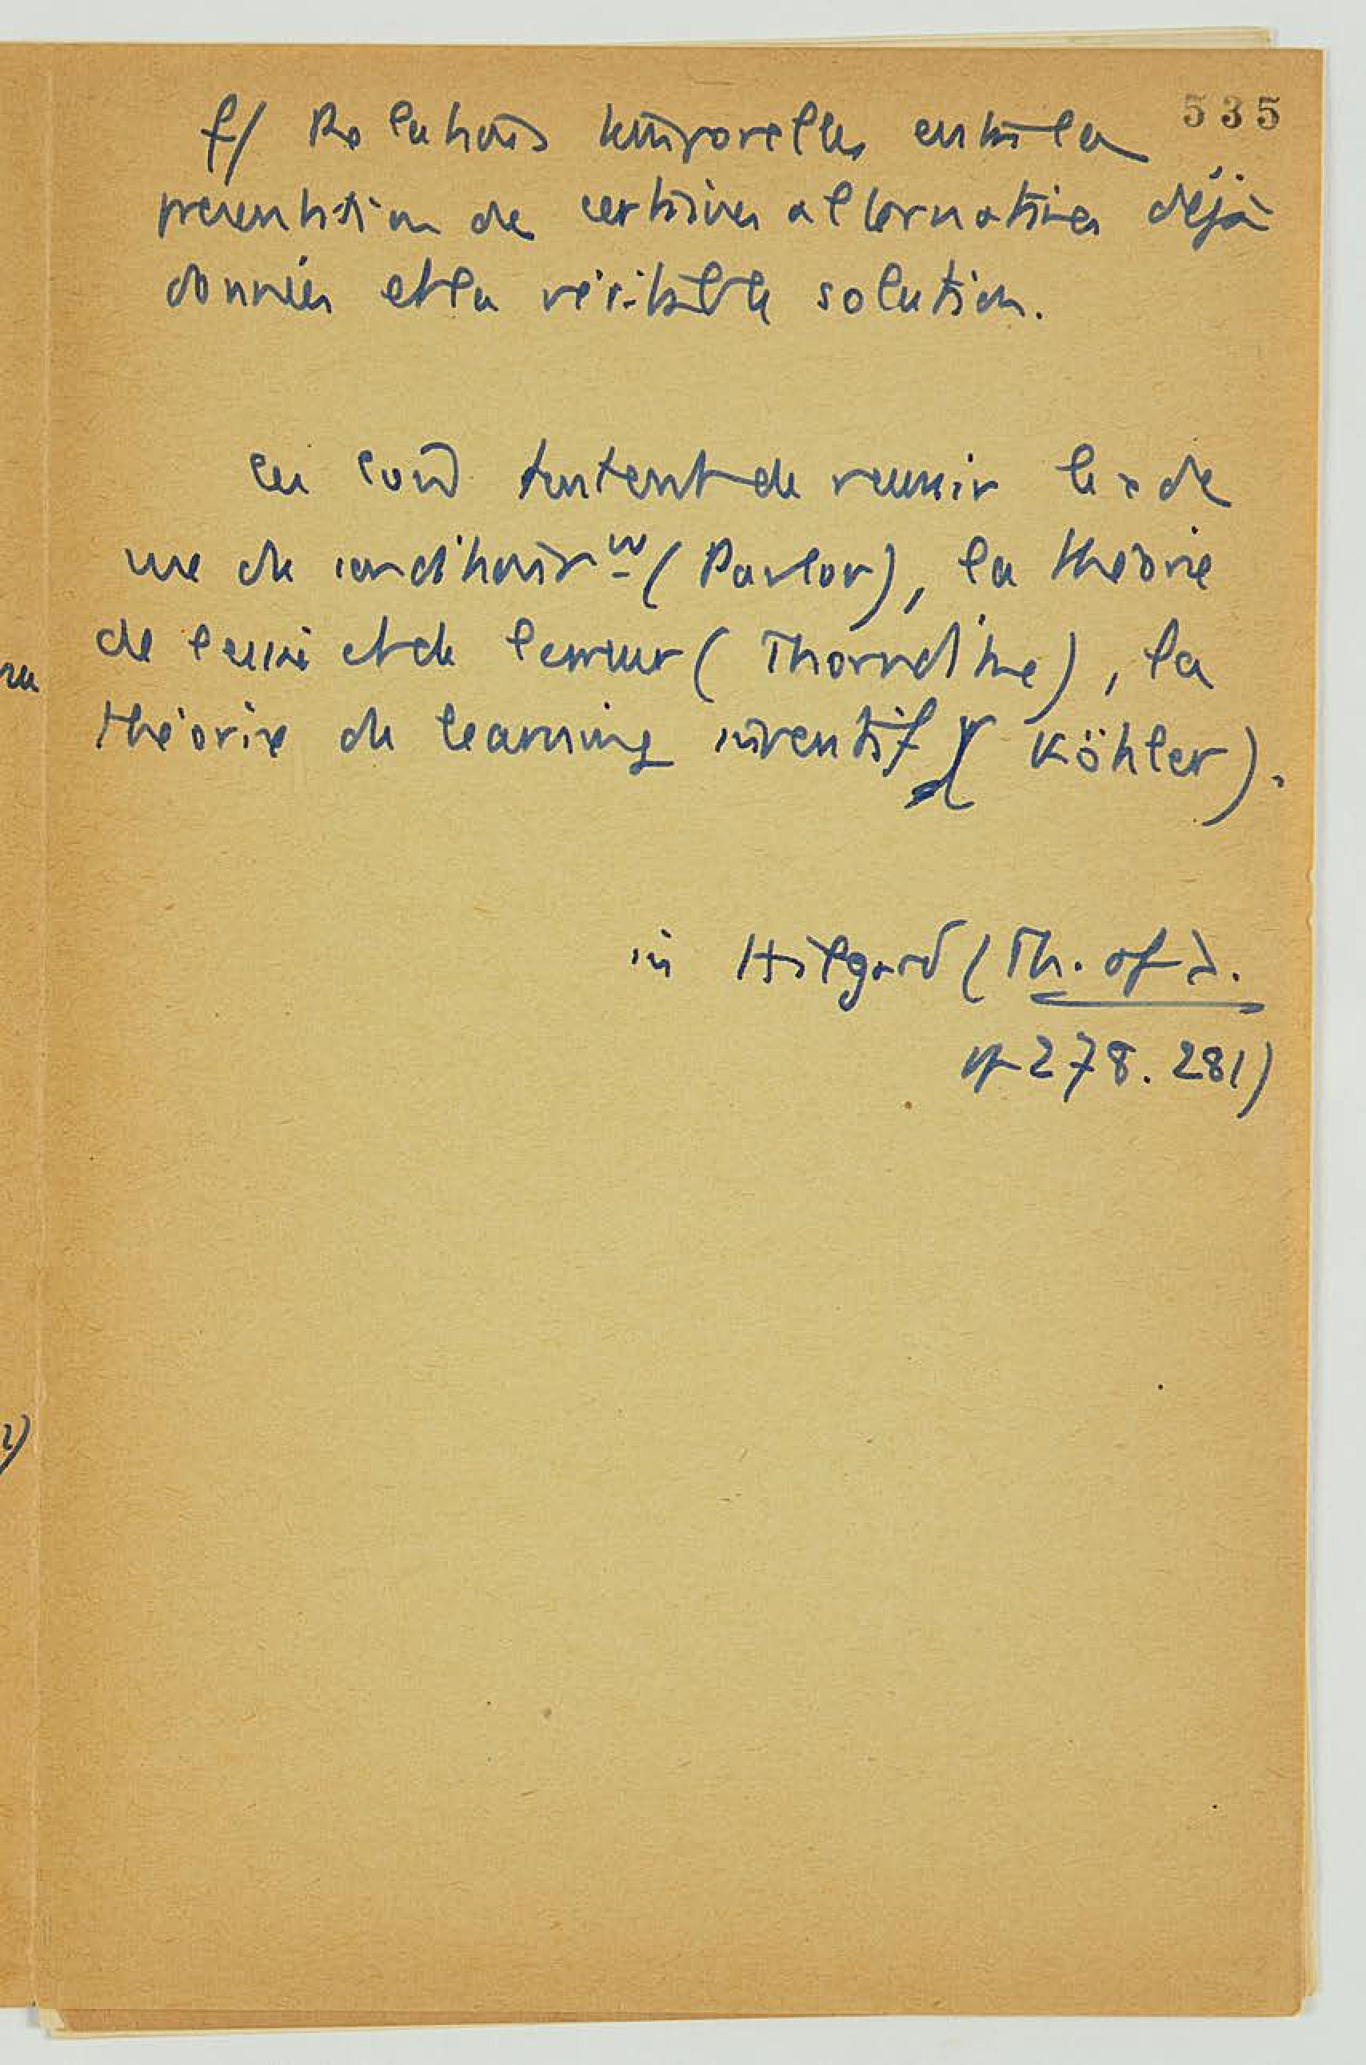 535
f/ Relations temporelles entre la
présentation de certaines alternatives déjà
données et la véritable solution.
tentent de réunir
de conditionnt (Pavlov), la théorie
de l'essai et de l'erreur (Thorndike), la
théorie du learning inventif (Köhler).
in Hilgard (Th. of L.
pp 278. 281)